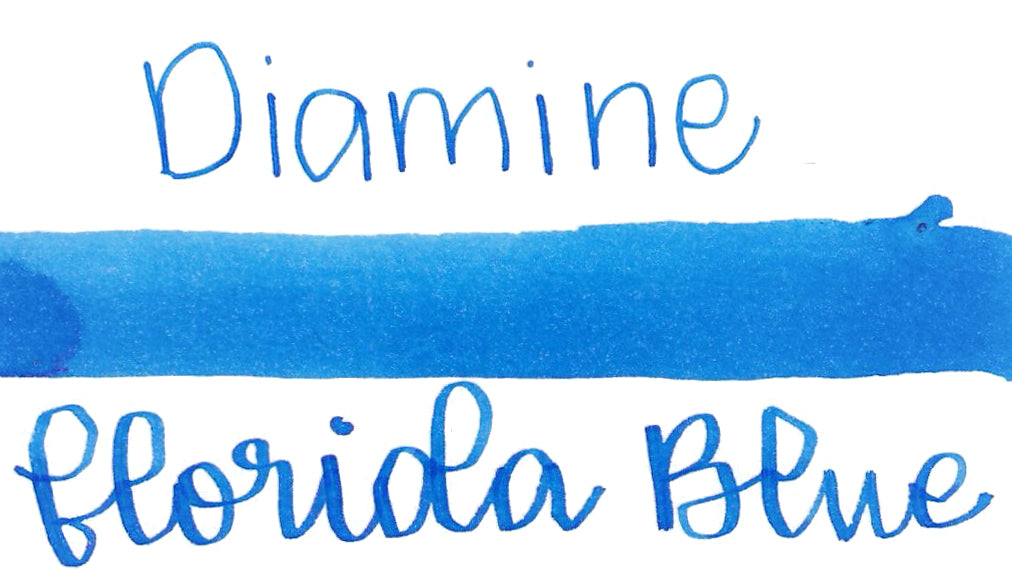 Diamine
florida Blue